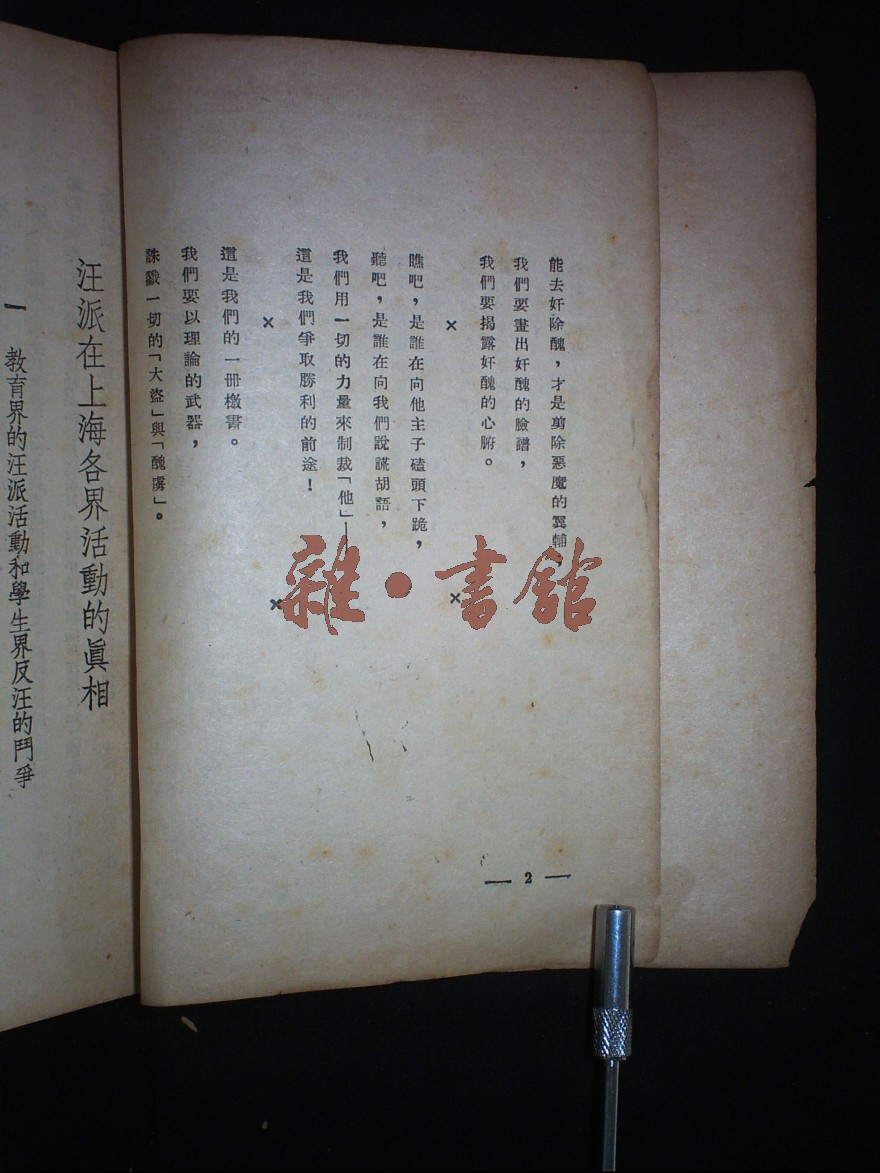 能去奸除醜，才是剪除惡魔的翼輔
我們要畫出奸醜的臉譜，
我們要揭露奸醜的心腑。
× ×
瞧吧，是誰在向他主子磕頭下跪，
聽吧，是誰在向我們說謊胡語，
我們用一切的力量來制裁「他」—
這是我們爭取勝利的前途！
× ×
這是我們的一冊檄書。
我們要以理論的武器，
誅戮一切的「大盜」與「醜虜」。
— 2 —
汪派在上海各界活動的眞相
一 教育界的汪派活動和學生界反汪的鬥爭
雜·書館